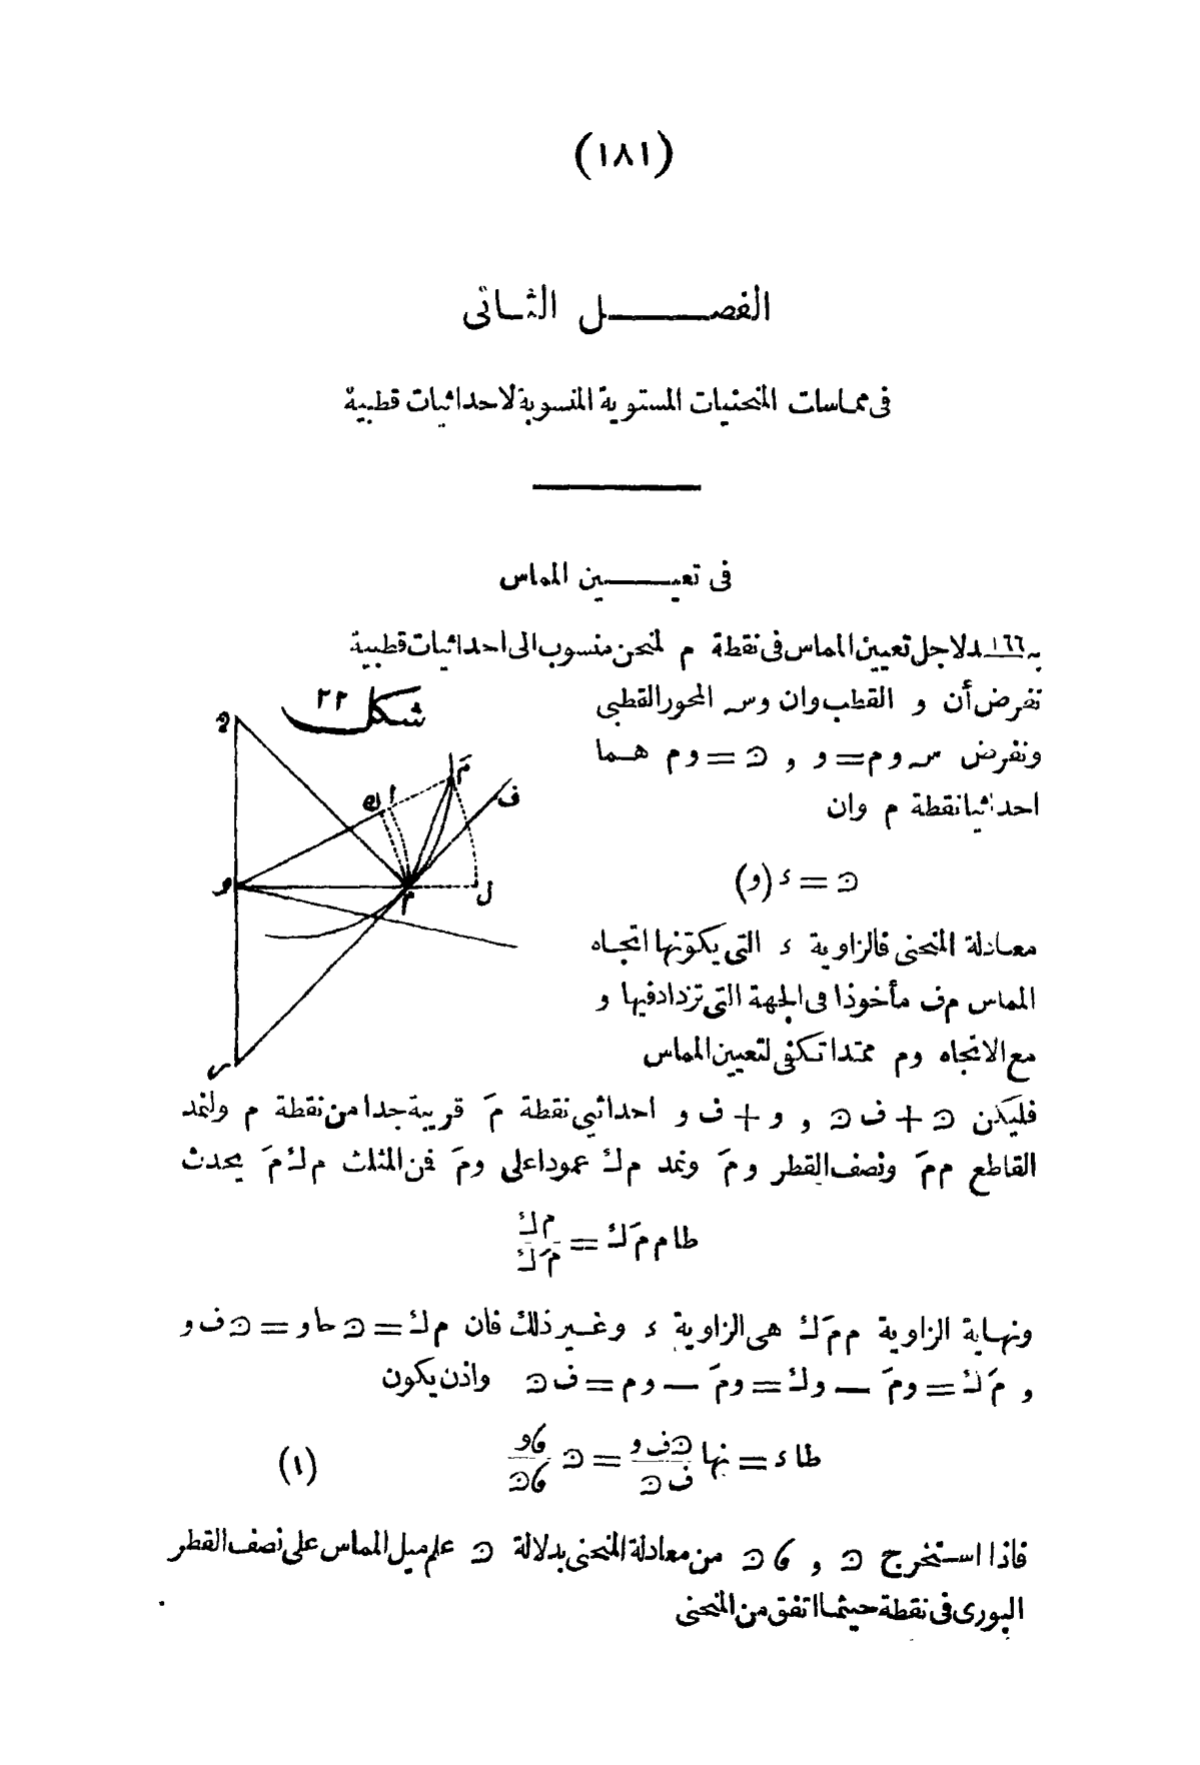 (١٨١)
الفصل الثانى
فى مماسات المنحنيات المستوية المنسوبة لاحداثيات قطبية
فى تعيين المماس
١٦٦ لاجل تعيين المماس فى نقطة م لمنحن منسوب الى احداثيات قطبية
نفرض أن و القطب وان وس المحور القطبى
شكل ٢٢
ونفرض س وم = و , ق = وم هما
احداثيا نقطة م وان
ق = د (و)
معادلة المنحنى فالزاوية ء التى يكوّنها اتجاه
المماس م ف مأخوذا فى الجهة التى تزداد فيها و
مع الاتجاه وم ممتدا تكفى لتعيين المماس
فليكن ق + ف ق , و + ف و احداثيى نقطة مَ قريبة جدا من نقطة م ولنمد
القاطع م مَ ونصف القطر ومَ ونمد م ك عمودا على ومَ فمن المثلث م ك مَ يحدث
طا م مَ ك = م ك / مَ ك
ونهاية الزاوية م مَ ك هى الزاوية ء وغير ذلك فان م ك = ق حا و = ق ف و
و مَ ك = ومَ — وك = ومَ — وم = ف ق واذن يكون
طا ء = نها ق ف و / ف ق = ق ﻛو / ﻛق (١)
فاذا استخرج ق , ﻛق من معادلة المنحنى بدلالة ق علم ميل المماس على نصف القطر
البورى فى نقطة حيثما اتفق من المنحنى